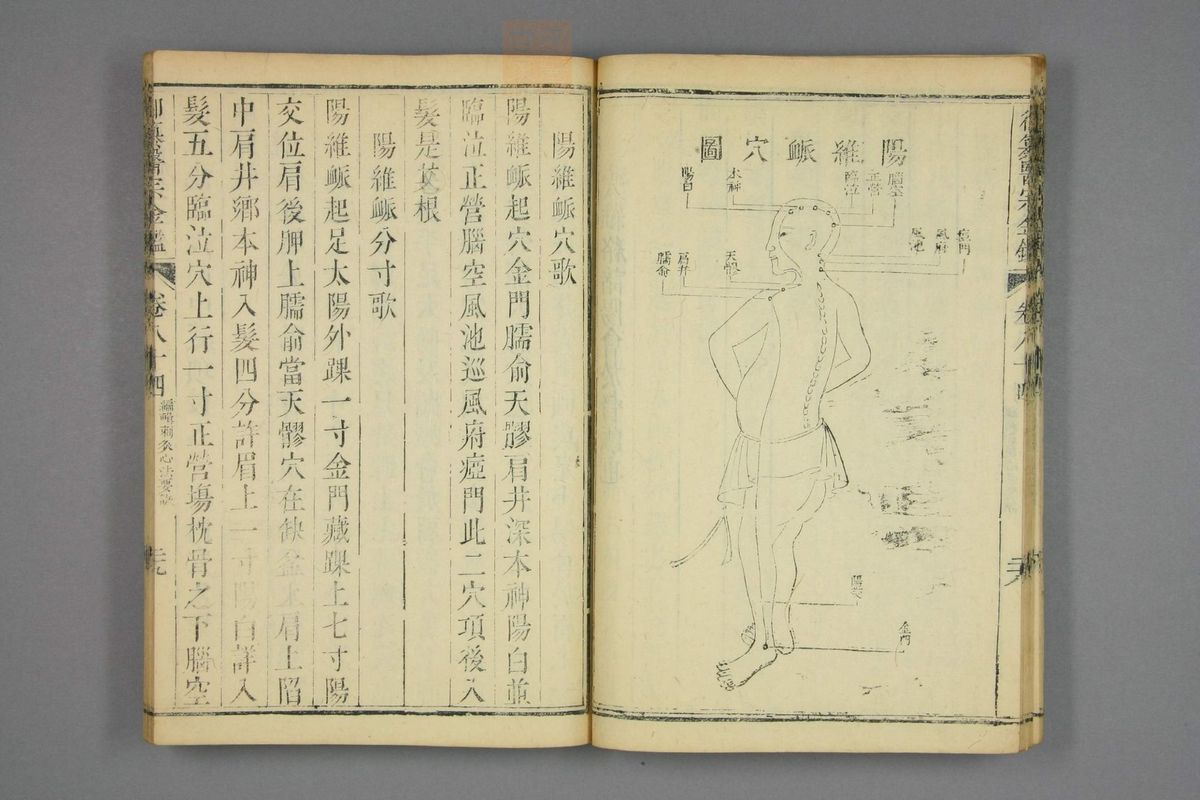 陽維脈穴圖
腦空
正營
臨泣
本神
陽白
瘂門
風府
風池
天髎
肩井
臑俞
金門
陽維脈穴歌
陽維脈起穴金門臑俞天髎肩井深本神陽白並
臨泣正營腦空風池巡風府瘂門此二穴項後入
髮是其根
陽維脈分寸歌
陽維脈起足太陽外踝一寸金門藏踝上七寸陽
交位肩後胛上臑俞當天髎穴在缺盆上肩上陷
中肩井鄉本神入髮四分許眉上一寸陽白詳入
髮五分臨泣穴上行一寸正營塲枕骨之下腦空
御纂醫宗金鑑
卷八十四
編輯刺灸心法要訣